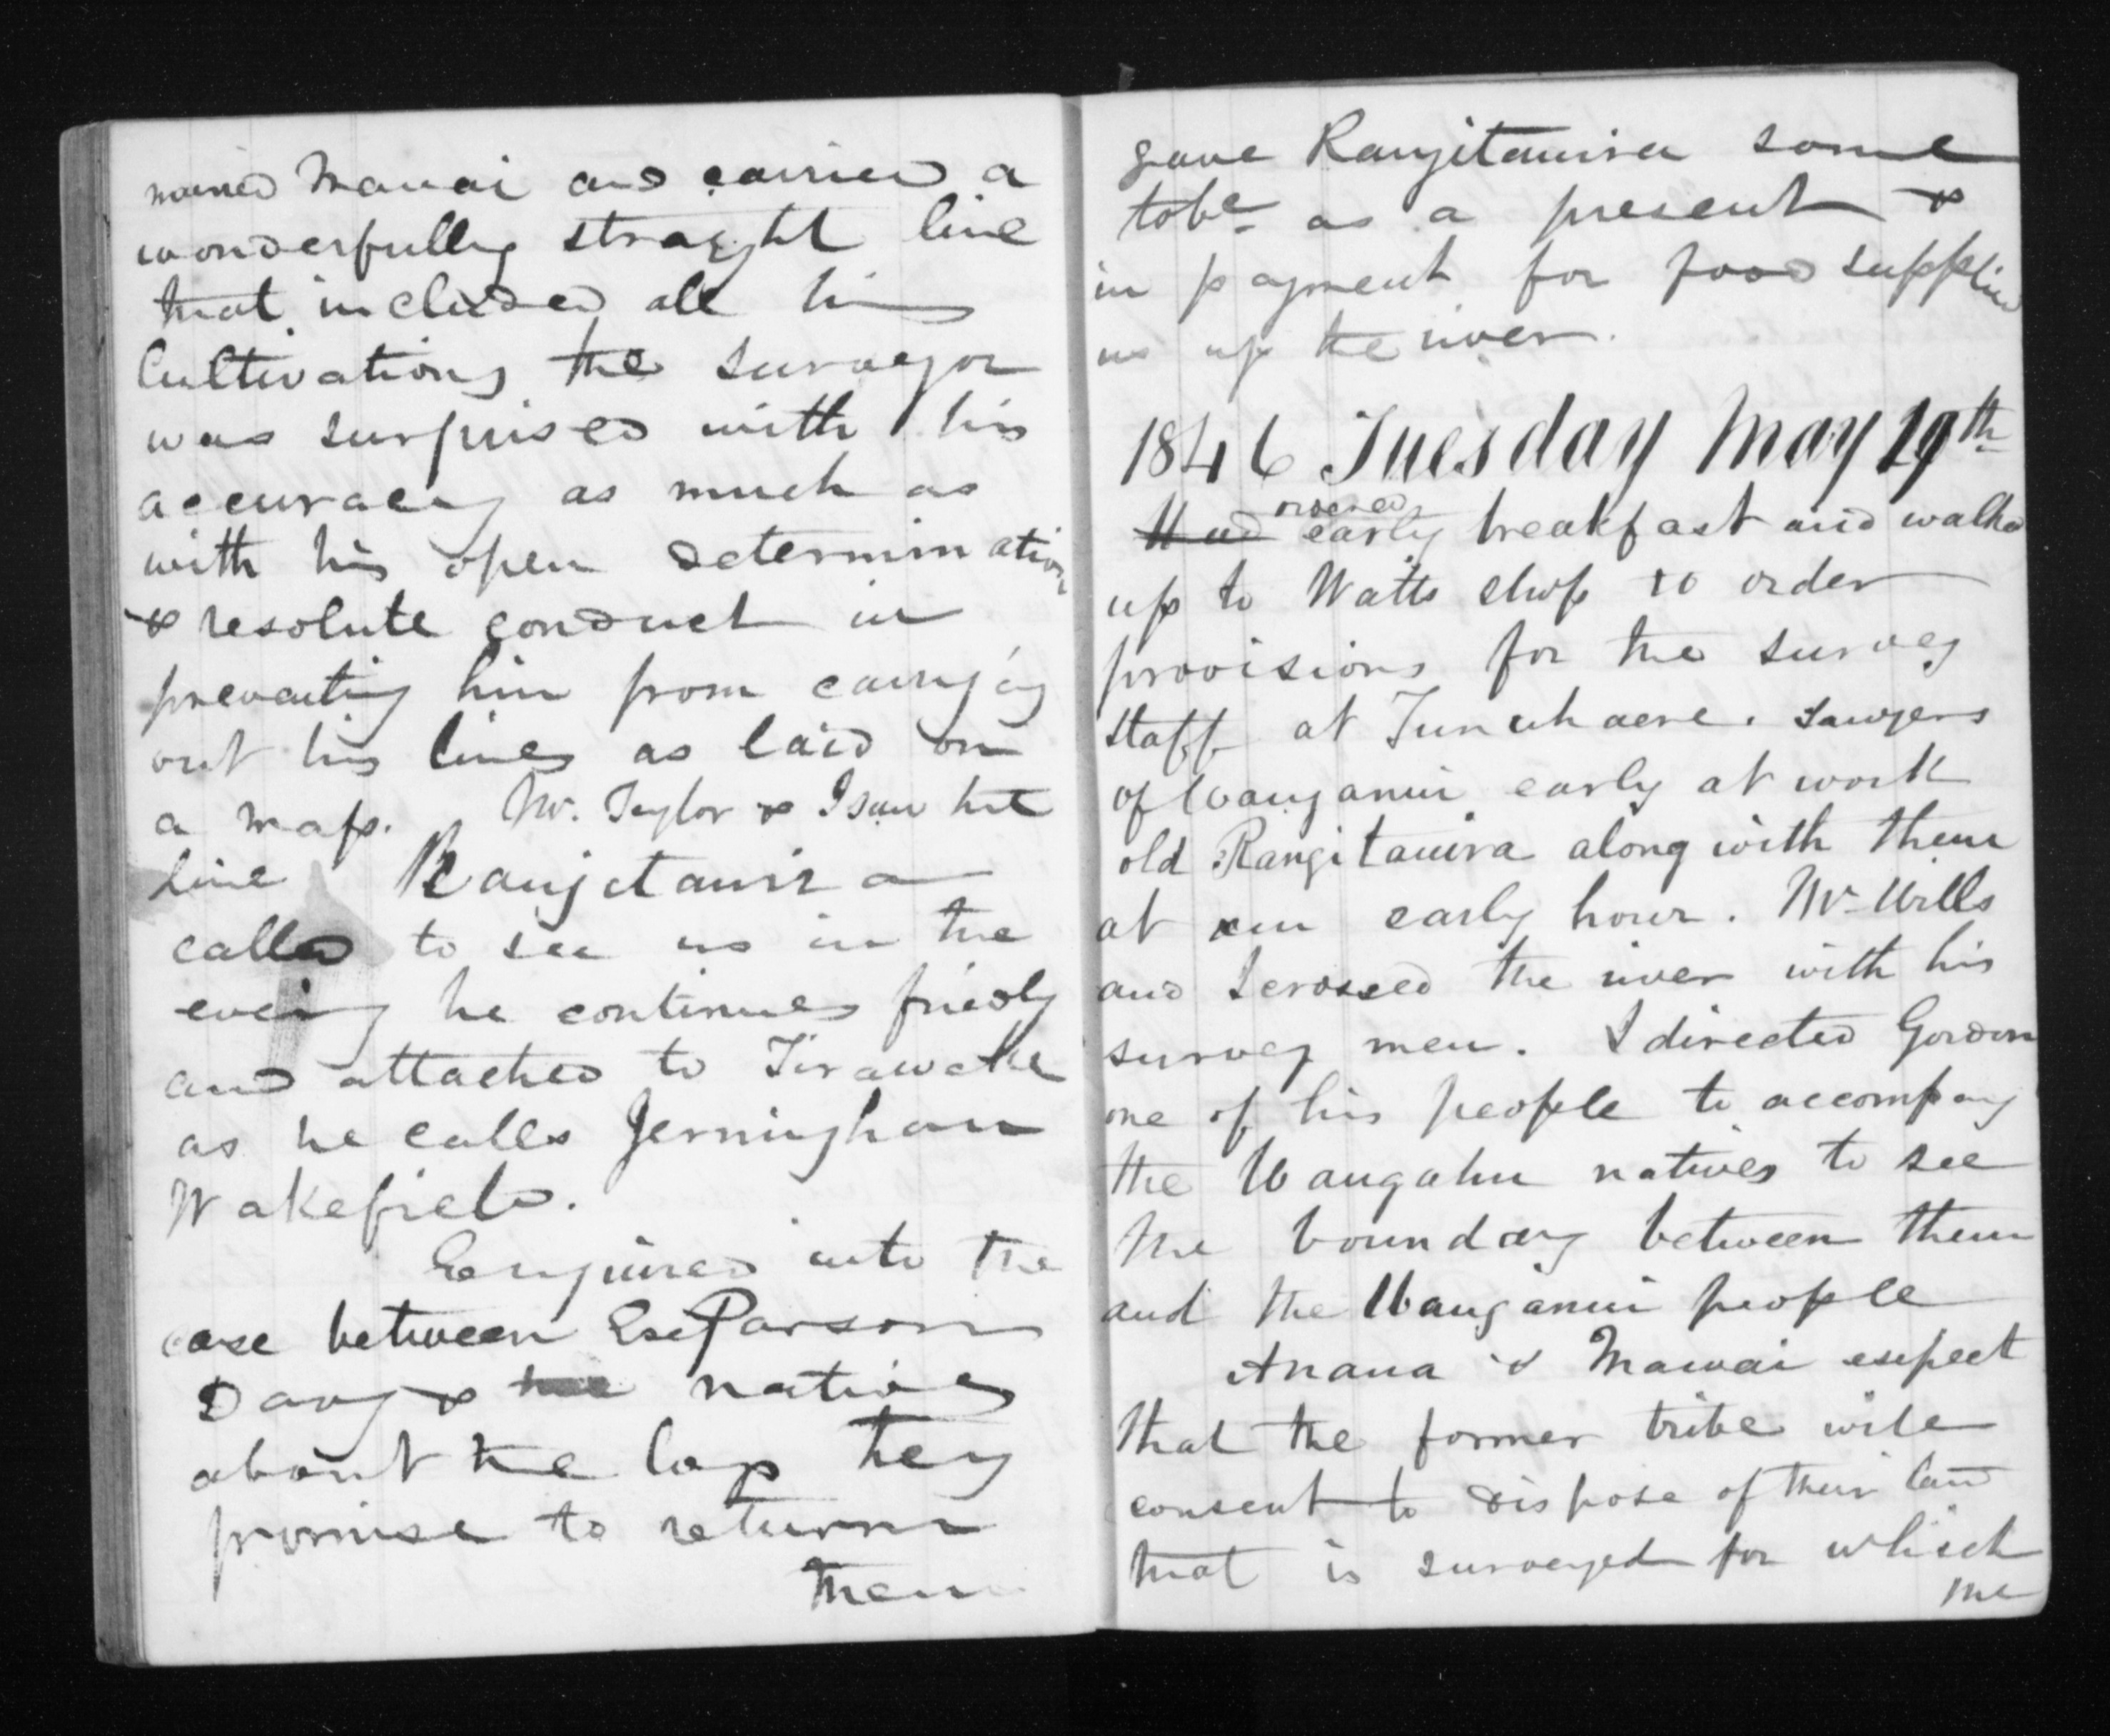 named Mawai and carried a
wonderfully straight line
that included all his
Cultivations the surveyor
was surprised with his
accuracy as much as
with his open determination
& resolute conduct in
preventing him from carrying
out his lines as laid on
a map. Mr. Taylor & I saw the
line Rangitauira
called to see us in the
evening he continues friendly
and attached to Tirawake
as he calls Jerningham
Wakefield.
Enquired into the
case between Parson
Davy & natives
about the logs they
promise to return
them
gave Rangitauira some
tobc as a present &
in payment for food supplied
us up the river.
1846 Tuesday May 19th
Had ordered early breakfast and walked
up to Watts shop to order
provisions for the survey
staff at Tunuhaere. Sawyers
of Wanganui early at work
old Rangitauira along with them
at an early hour. Mr Wills
and I crossed the river with his
survey men. I directed Gordon
one of his people to accompany
the Wangahu natives to see
the boundary between them
and the Wanganui people
Anaua & Mawai expect
that the former tribe will
consent to dispose of their land
that is surveyed for which
the